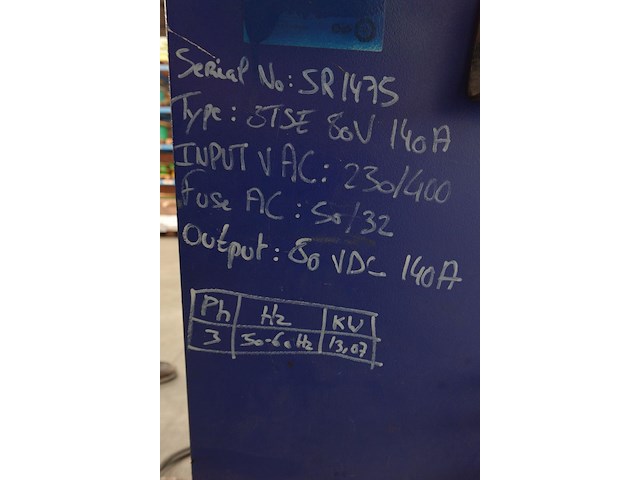 Serial No: SR1475
Type: 3TSE 80V 140A
INPUT V AC: 230/400
Fuse AC: 50/32
Output: 80 VDC 140A
Ph Hz KW
3 50-60Hz 13,07